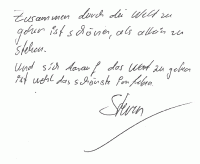 Zusammen durch die Welt zu
gehen ist schöner, als allein zu
stehen.
Und sich darauf das Wort zu geben
ist wohl das schönste im Leben.